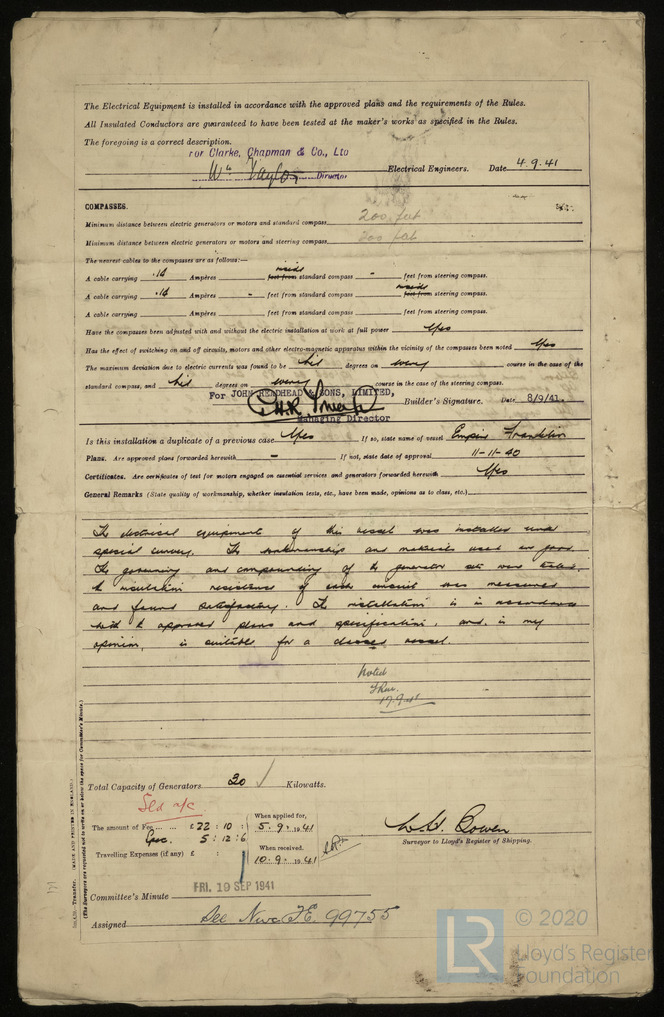 The Electrical Equipment is installed in accordance with the approved plans and the requirements of the Rules.
All Insulated Conductors are guaranteed to have been tested at the maker's works as specified in the Rules.
The foregoing is a correct description.
For Clarke, Chapman & Co., Ltd
Wm Taylor Director Electrical Engineers. Date 4.9.41
COMPASSES.
Minimum distance between electric generators or motors and standard compass 200 feet
Minimum distance between electric generators or motors and steering compass 200 feet
The nearest cables to the compasses are as follows:—
A cable carrying .14 Ampères inside feet from standard compass - feet from steering compass.
A cable carrying .14 Ampères - feet from standard compass inside feet from steering compass.
A cable carrying Ampères feet from standard compass feet from steering compass.
Have the compasses been adjusted with and without the electric installation at work at full power Yes
Has the effect of switching on and off circuits, motors and other electro-magnetic apparatus within the vicinity of the compasses been noted Yes
The maximum deviation due to electric currents was found to be Nil degrees on every course in the case of the
standard compass, and Nil degrees on every course in the case of the steering compass.
For JOHN READHEAD & SONS, LIMITED,
Builder's Signature. Date 8/9/41.
Managing Director
Is this installation a duplicate of a previous case Yes If so, state name of vessel Empire Franklin
Plans. Are approved plans forwarded herewith - If not, state date of approval 11-11-40
Certificates. Are certificates of test for motors engaged on essential services and generators forwarded herewith Yes
General Remarks (State quality of workmanship, whether insulation tests, etc., have been made, opinions as to class, etc.)
The electrical equipment of this vessel was installed under
special survey. The workmanship and materials used are good.
The governing and compounding of the generator sets was tested,
the insulation resistance of each circuit was measured
and found satisfactory. The installation is in accordance
with the approved plans and specification, and, in my
opinion, is suitable for a classed vessel.
Noted
17.9.41
Total Capacity of Generators 30 Kilowatts.
The amount of Fee £ 22 : 10 : When applied for, 5.9.1941
5 : 12 : 6
Travelling Expenses (if any) £ : : When received, 10.9.1941
W.H. Bowen
Surveyor to Lloyd's Register of Shipping.
Committee's Minute FRI. 19 SEP 1941
Assigned See Nwc F.E. 99755
Transfer. (MADE AND PRINTED IN ENGLAND.)
(The Surveyors are requested not to write on or below the space for Committee's Minute.)
LR © 2020
Lloyd's Register
Foundation